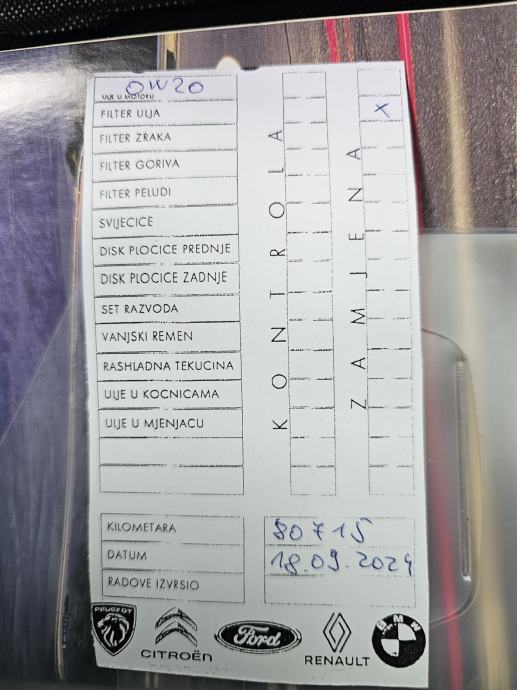 0W20
ULJE U MOTORU
FILTER ULJA X
FILTER ZRAKA
FILTER GORIVA
FILTER PELUDI
SVIJECICE
DISK PLOCICE PREDNJE
DISK PLOCICE ZADNJE
SET RAZVODA
VANJSKI REMEN
RASHLADNA TEKUCINA
ULJE U KOCNICAMA
ULJE U MJENJACU
KONTROLA
ZAMJENA
KILOMETARA 80715
DATUM 18.09.2024
RADOVE IZVRSIO
PEUGEOT
CITROËN
Ford
RENAULT
BMW